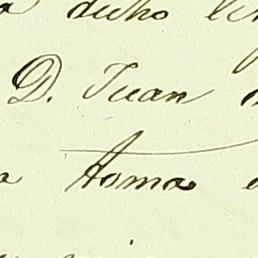 dicho
D. Juan
toma